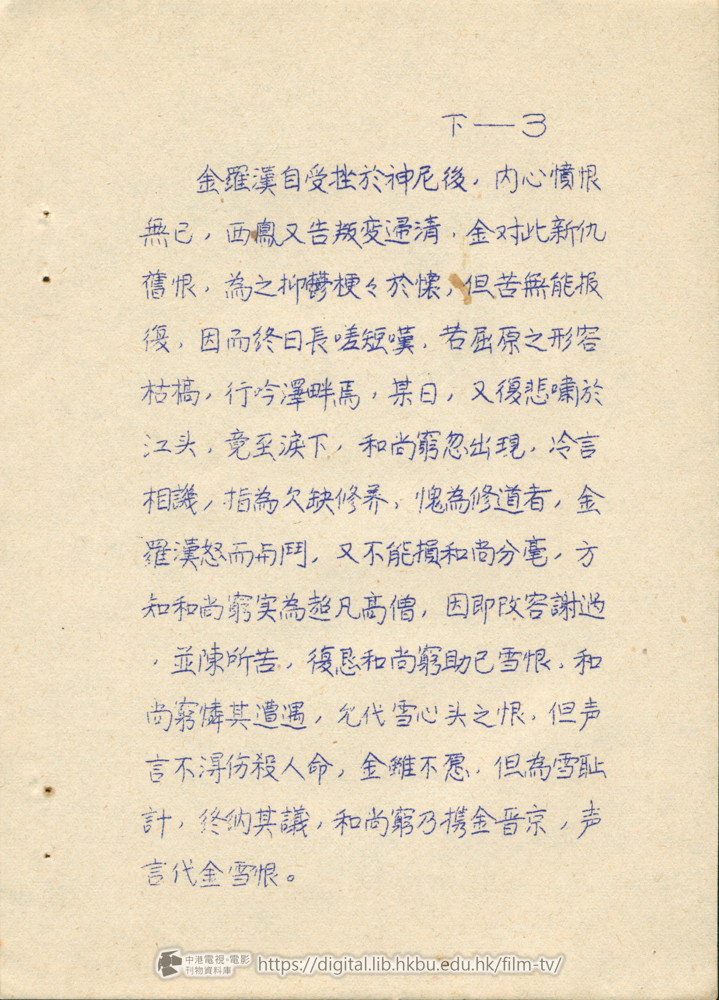 下——3
金羅漢自受挫於神尼後，内心憤恨
無已，西鳳又告叛变歸清，金对此新仇
舊恨，為之抑鬱梗々於懷，但苦無能报
復，因而終日長嗟短嘆，若屈原之形容
枯槁，行吟澤畔焉，某日，又復悲嘯於
江头，竟至淚下，和尚窮忽出現，冷言
相譏，指為欠缺修养，愧為修道者，金
羅漢怒而与鬥，又不能損和尚分毫，方
知和尚窮实為超凡高僧，因即改容謝过
，並陳所苦，復恳和尚窮助己雪恨，和
尚窮憐其遭遇，允代雪心头之恨，但声
言不得伤殺人命，金雖不愿，但為雪耻
計，終納其議，和尚窮乃携金晋京，声
言代金雪恨。
中港電視·電影
刊物資料庫
https://digital.lib.hkbu.edu.hk/film-tv/